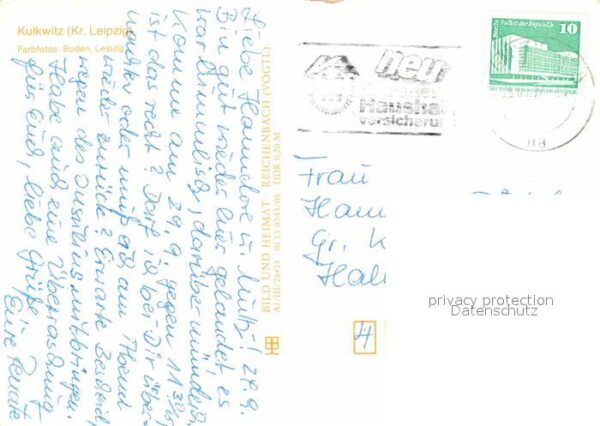 Kulkwitz (Kr. Leipzig)
Farbfotos: Boden, Leipzig
Liebe Hannelore u. Mutz! 24.9.
Bin gut wieder hier gelandet es
war himmlisch, darüber mündlich.
Komme am 29.9. gegen 11
ist das recht? Darf ich bei Dir über-
nachten oder muß ich am Abend
wieder zurück? Erwarte Bescheid,
wegen des mitbringen.
Habe auch eine Überraschung
für Euch, liebe Grüße
Eure Renate
BILD UND HEIMAT REICHENBACH (VOGTL)
01 13 0343/08 DDR 0,20 M
neu
Haushalt
versicherung
Berlin, Palast der Republik
10
DDR
Frau
Han
Gr. K
Hall
privacy protection
Datenschutz